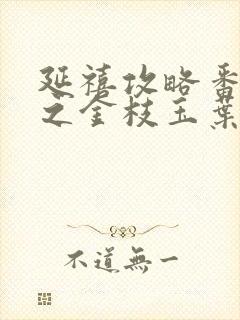 延禧攻略番
之金枝玉葉
不道無一